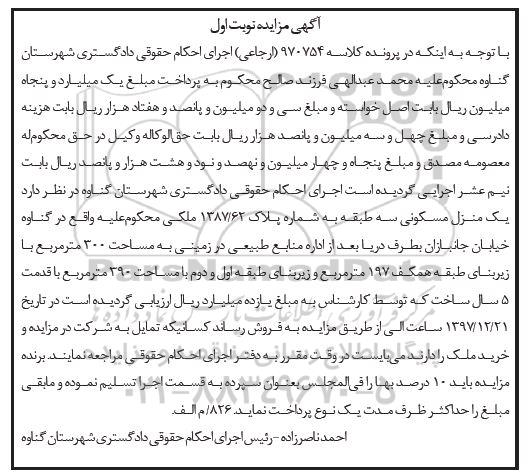 آگهی مزایده نوبت اول
با توجه به اینکه در پرونده کلاسه ۹۷۰۷۵۴ (ارجاعی) اجرای احکام حقوقی دادگستری شهرستان
گناوه محکوم‌علیه محمد عبدالهی فرزند صالح محکوم به پرداخت مبلغ یک میلیارد و پنجاه
میلیون ریال بابت اصل خواسته و مبلغ سی و دو میلیون و پانصد و هفتاد هزار ریال بابت هزینه
دادرسی و مبلغ چهل و سه میلیون و پانصد هزار ریال بابت حق‌الوکاله وکیل در حق محکوم‌له
معصومه مصدق و مبلغ پنجاه و چهار میلیون و نهصد و نود و هشت هزار و پانصد ریال بابت
نیم عشر اجرایی گردیده است اجرای احکام حقوقی دادگستری شهرستان گناوه در نظر دارد
یک منزل مسکونی سه طبقه به شماره پلاک ۱۳۸۷/۶۲ ملکی محکوم‌علیه واقع در گناوه
خیابان جانبازان بطرف دریا بعد از اداره منابع طبیعی در زمینی به مساحت ۳۰۰ مترمربع با
زیربنای طبقه همکف ۱۹۷ مترمربع و زیربنای طبقه اول و دوم با مساحت ۳۹۰ مترمربع با قدمت
۵ سال ساخت که توسط کارشناس به مبلغ یازده میلیارد ریال ارزیابی گردیده است در تاریخ
۱۳۹۷/۱۲/۲۱ ساعت الی از طریق مزایده به فروش رساند کسانیکه تمایل به شرکت در مزایده و
خرید ملک را دارند می‌بایست در وقت مقرر به دفتر اجرای احکام حقوقی مراجعه نمایند. برنده
مزایده باید ۱۰ درصد بها را فی‌المجلس بعنوان سپرده به قسمت اجرا تسلیم نموده و مابقی
مبلغ را حداکثر ظرف مدت یک نوع پرداخت نماید. ۸۲۶/م الف.
احمد ناصرزاده - رئیس اجرای احکام حقوقی دادگستری شهرستان گناوه
ParsNamadData
۰۲۱-۸۸۳۴۹۶۷۰-۵